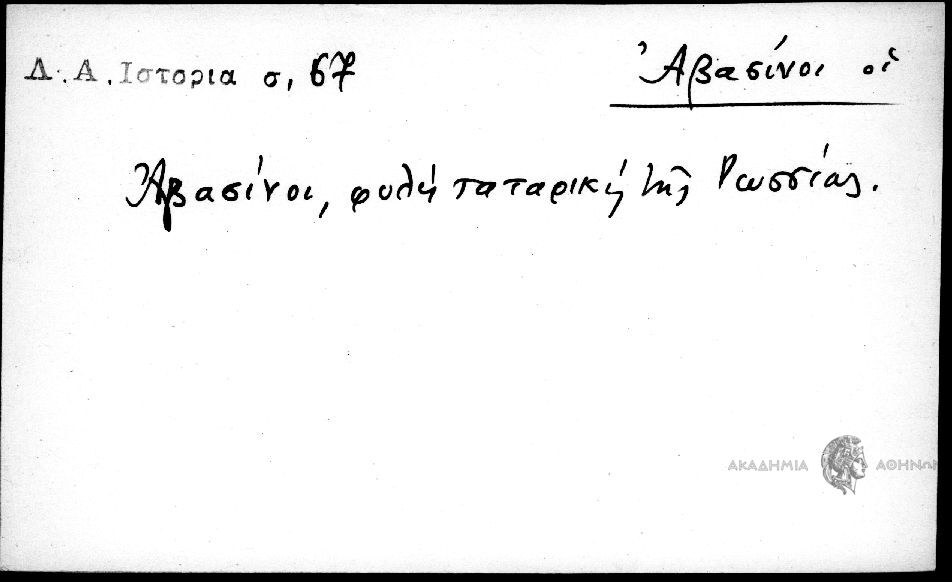 Δ. Α. Ιστορια σ, 67
Ἀβασίνοι οἱ
Ἀβασίνοι, φυλή ταταρική τῆς Ρωσσίας.
ΑΚΑΔΗΜΙΑ ΑΘΗΝΩΝ